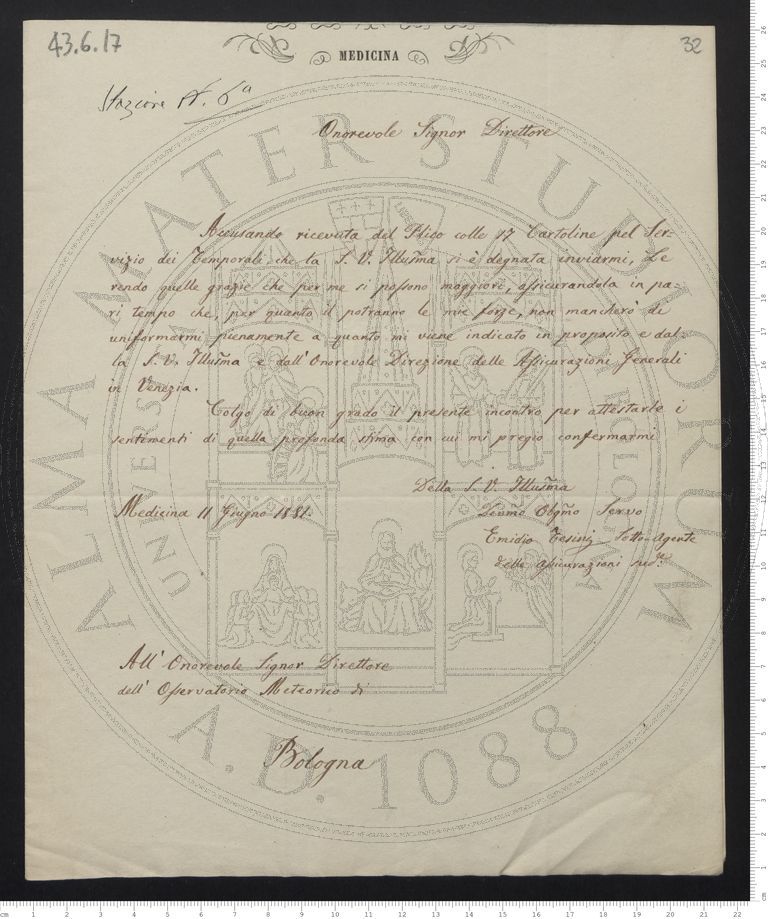 43.6.17
32
MEDICINA
Stazione N. 6ª
Onorevole Signor Direttore
Accusando ricevuta del Plico colle 17 Cartoline pel Ser-
vizio dei Temporali che la S. V. Illusma si è degnata inviarmi, Le
rendo quelle grazie che per me si possono maggiori, assicurandola in pa-
ri tempo che, per quanto il potranno le mie forze, non mancherò di
uniformarmi pienamente a quanto mi viene indicato in proposito e dal-
la S. V. Illusma e dall'Onorevole Direzione delle Assicurazioni Generali
in Venezia.
Colgo di buon grado il presente incontro per attestarle i
sentimenti di quella profonda stima con cui mi pregio confermarmi
Della S. V. Illusma
Medicina 11 Giugno 1881.
Devmo Obgmo Servo
Emidio Tesini Sotto-Agente
delle assicurazioni sudte
All' Onorevole Signor Direttore
dell' Osservatorio Meteorico di
Bologna
ALMA MATER STUDIORUM
A.D. 1088